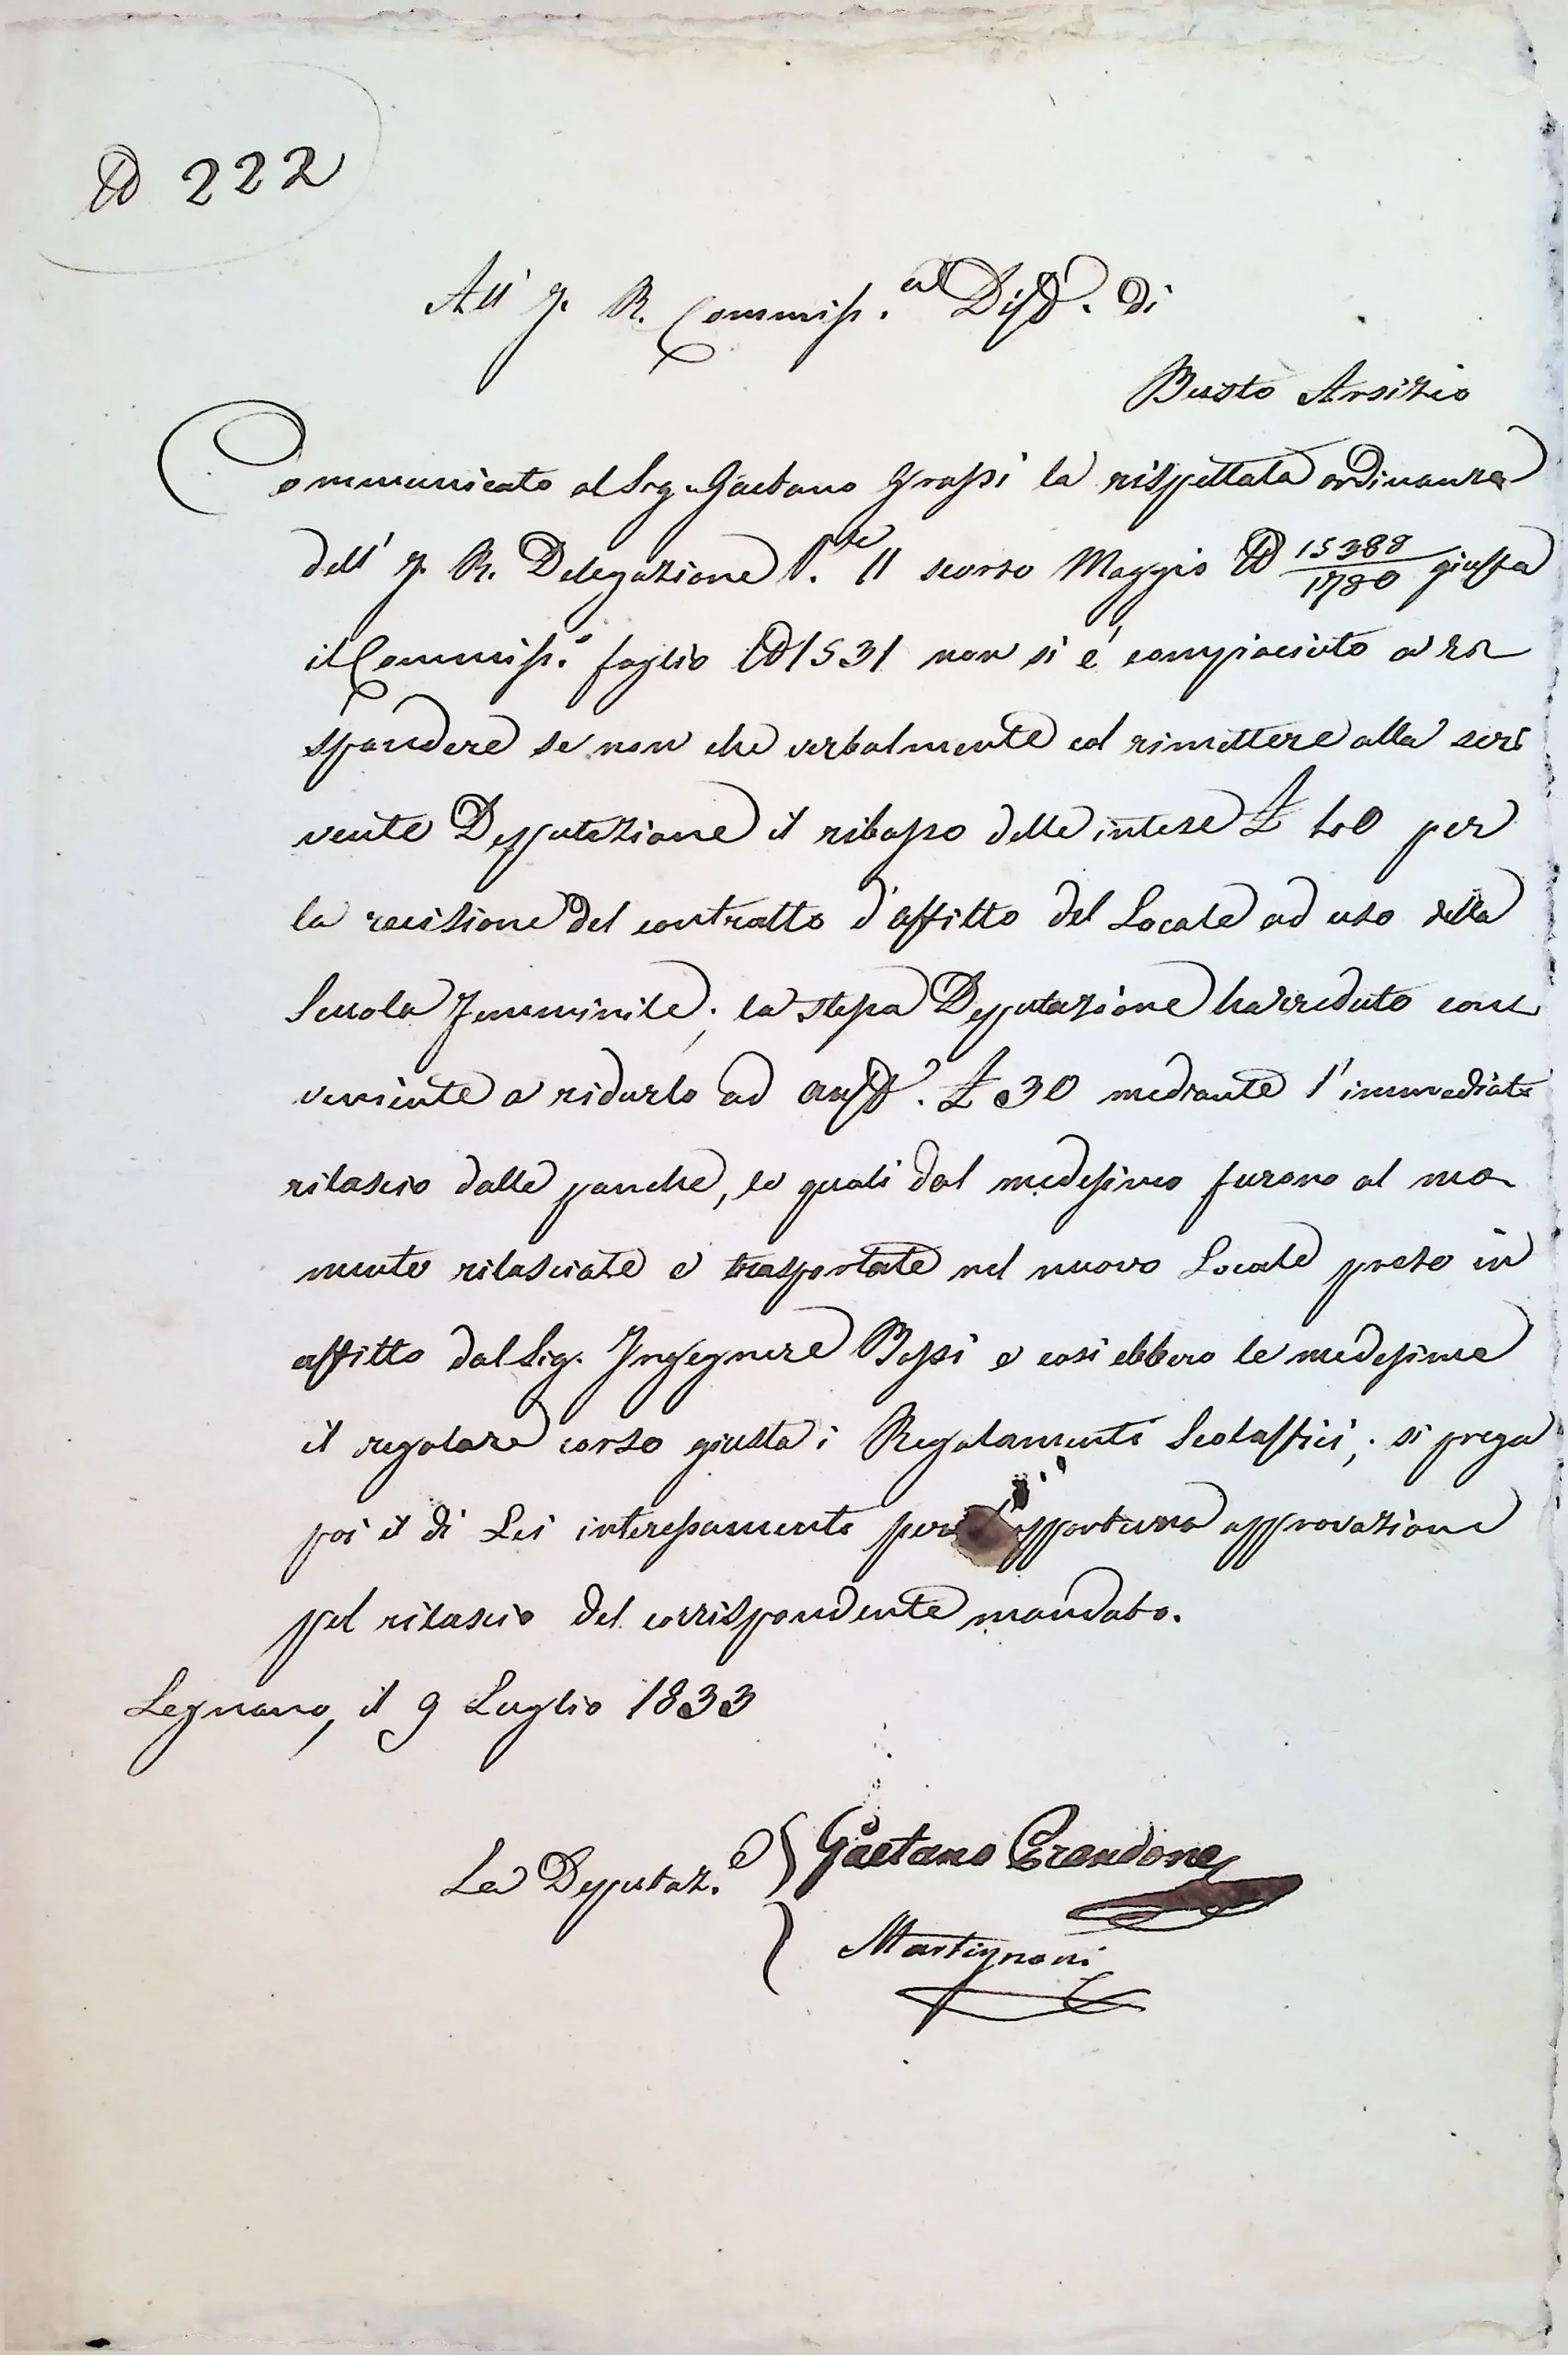 N 222
All' I. R. Commiss.al Dist. di
Busto Arsizio
Communicato al Sig. Gaetano Grassi la rispettata ordinanza
dell' I. R. Delegazione P.le 11 scorso Maggio N 15388/1780 giusta
il Commiss.o foglio N 1531 non si é compiaciuto a ri
spondere se non che verbalmente col rimettere alla scri
vente Deputazione il ribasso delle intese £ 40 per
la recisione del contratto d'affitto del Locale ad uso della
Scuola Femminile; la stessa Deputazione ha creduto con
veniente a ridurlo ad aust. £ 30 mediante l'immediato
rilascio delle panche, le quali dal medesimo furono al mo
mento rilasciate e trasportate nel nuovo Locale preso in
affitto dal Sig. Ingegnere Bossi e così ebbero le medesime
il regolare corso giusta i Regolamenti Scolastici; si prega
poi il di Lei interessamento per opportuna approvazione
pel rilascio del corrispondente mandato.
Legnano, il 9 Luglio 1833
La Deputaz.e Gaetano
Martignoni